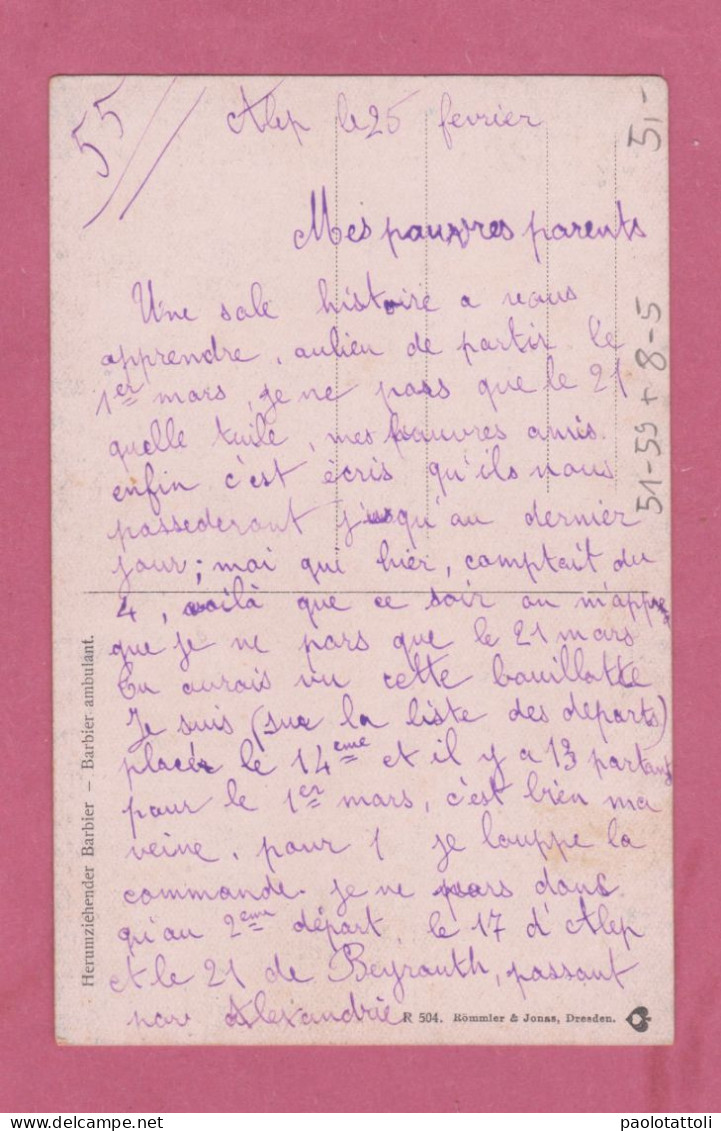 55
Alep le 25 fevrier
5,-
Mes pauvres parents
Une sale histoire a vous
apprendre, aulieu de partir le
1er mars, je ne pars que le 21
quelle tuile, mes pauvres amis.
enfin c'est écris qu'ils nous
possederont jusqu'au dernier
jour; moi qui hier, comptait du
4, voilà que ce soir on m'appr
que je ne pars que le 21 mars
Tu aurais vu cette bouillotte
Je suis (sur la liste des departs)
placér le 14eme et il y a 13 partants
pour le 1er mars, c'est bien ma
veine, pour 1 je louppe la
commande. je ne pars donc
qu'au 2eme départ, le 17 d'Alep
et le 21 de Beyrouth, passant
par Alexandrie
51-59 + 8-5
Herumziehender Barbier — Barbier ambulant.
R 504. Römmler & Jonas, Dresden.
paolotattoli